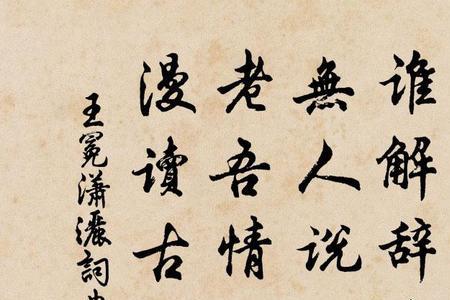 谁解辞
無人说
老吾情
漫讀古
王冕潇灑詞